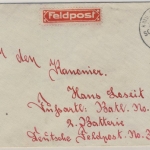 Feldpost
An den Kanonier
Hans Loseit
Fußartl. Batl. No.
2. Batterie
Deutsche Feldpost No.